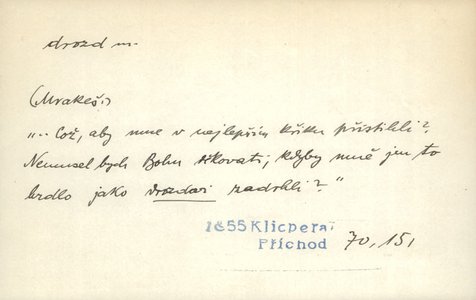 drozd m.
(Mrakeš:)
„.. Což, aby mne v nejlepším křiku přistihli?
Nemusel bych Bohu děkovati, kdyby mně jen to
hrdlo jako drozdovi zadrhli?"
1855 Klicpera:
Příchod 70, 15,